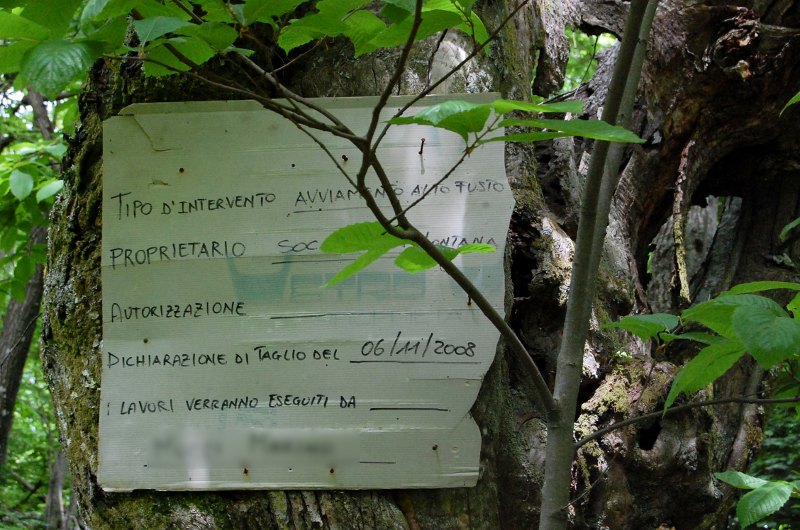 TIPO D'INTERVENTO AVVIAMENTO ALTO FUSTO
PROPRIETARIO SOC
AUTORIZZAZIONE
DICHIARAZIONE DI TAGLIO DEL 06/11/2008
I LAVORI VERRANNO ESEGUITI DA